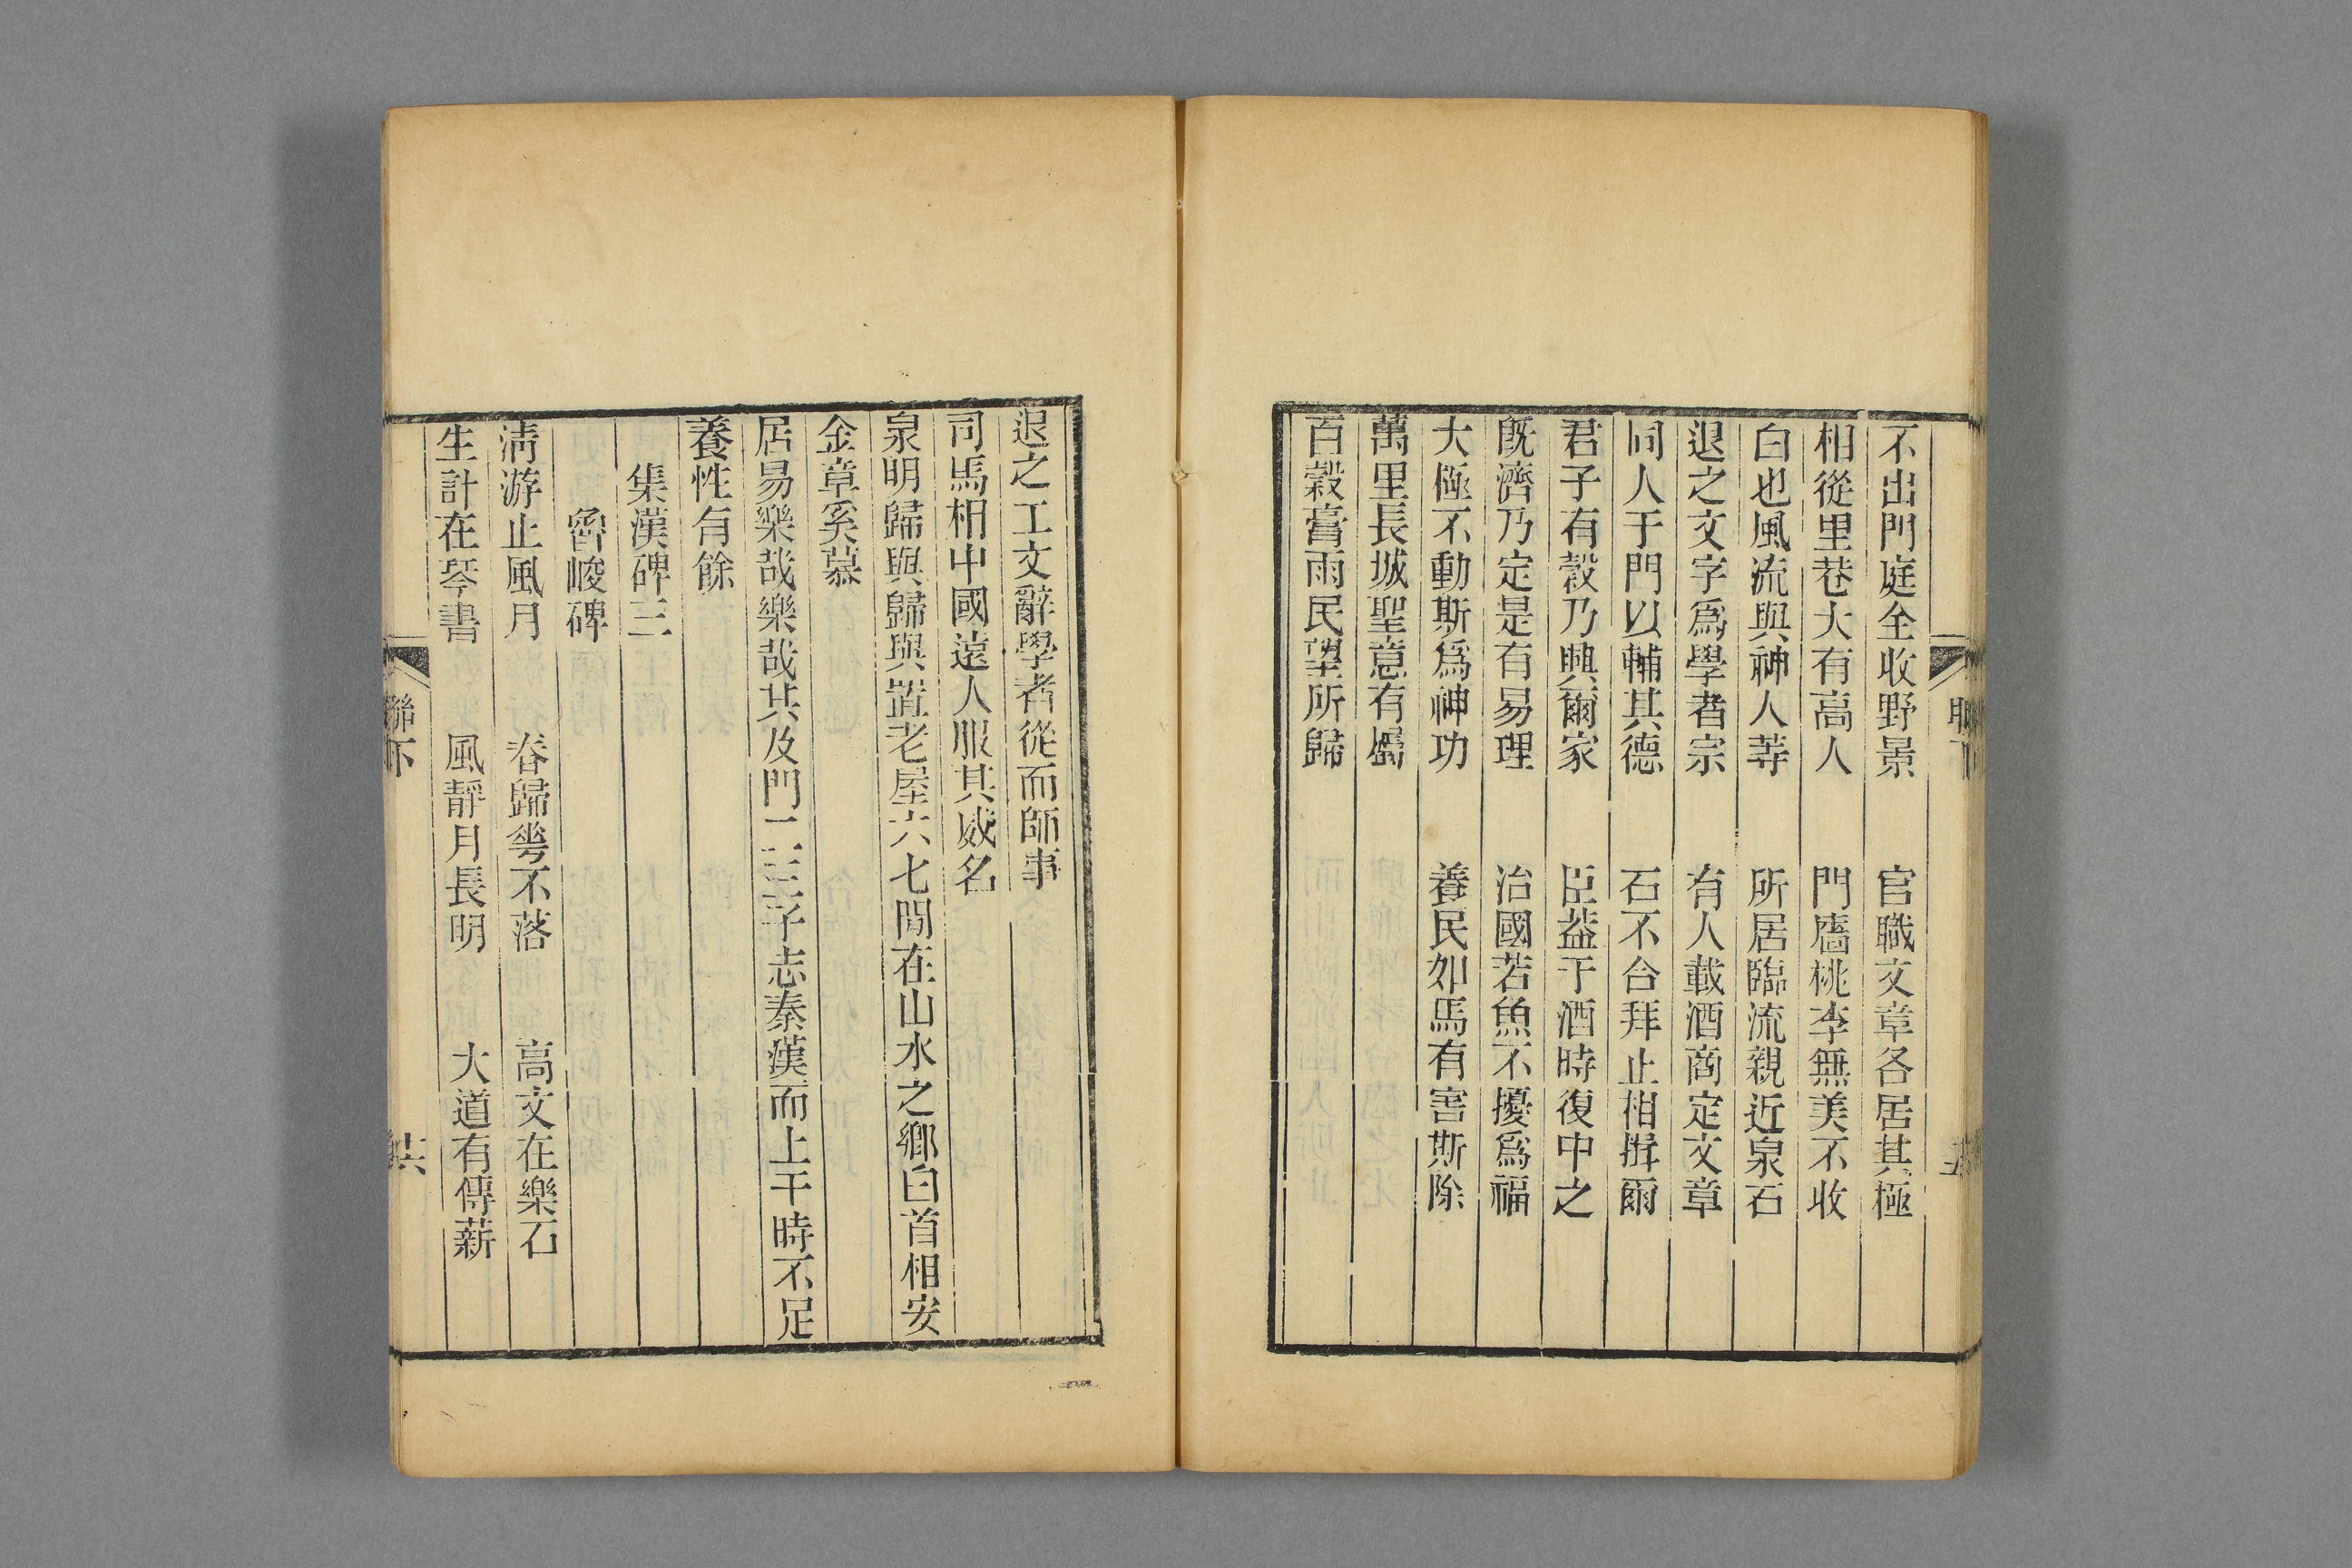 不出門庭全收野景　官職文章各居其極
相從里巷大有高人　門廧桃李無美不收
白也風流與神人等　所居臨流親近泉石
退之文字爲學者宗　有人載酒商定文章
同人于門以輔其德　石不合拜止相揖爾
君子有穀乃興爾家　臣益于酒時復中之
旣濟乃定是有易理　治國若魚不擾爲福
大極不動斯爲神功　養民如馬有害斯除
萬里長城聖意有屬
百穀膏雨民望所歸
退之工文辭學者從而師事
司馬相中國遠人服其威名
泉明歸與歸與置老屋六七閒在山水之鄉白首相安
金章奚慕
居易樂哉樂哉其及門二三子志秦漢而上干時不足
養性有餘
集漢碑三
魯峻碑
淸游止風月　春歸雩不落　高文在樂石
生計在琴書　風靜月長明　大道有傳薪
聯下